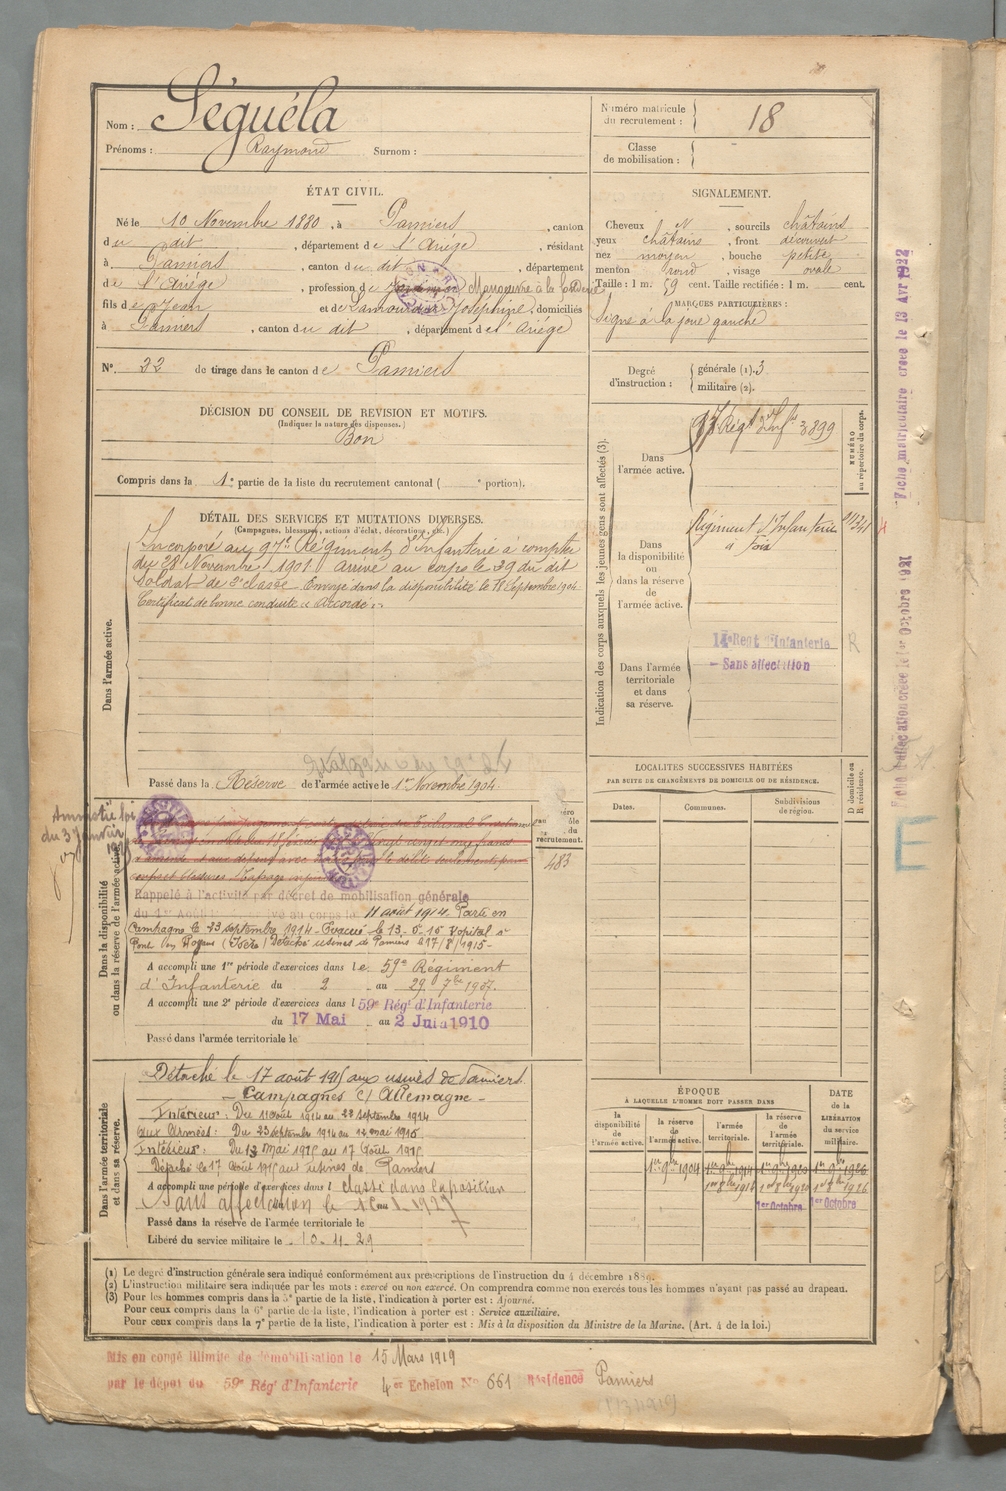 Nom : Séguéla
Prénoms : Raymond Surnom :
Numéro matricule du recrutement : 18
Classe de mobilisation :
ÉTAT CIVIL.
Né le 10 Novembre 1880, à Pamiers, canton
du dit, département de l'Ariége, résidant
à Pamiers, canton du dit, département
de l'Ariége, profession de Manœuvre à la fonderie
fils de Jean et de Lamoureux Joséphine, domiciliés
à Pamiers, canton du dit, département de l'Ariége
N° 22 de tirage dans le canton de Pamiers
SIGNALEMENT.
Cheveux N, sourcils châtains
yeux châtains, front découvert
nez moyen, bouche petite
menton rond, visage ovale
Taille : 1 m. 59 cent. Taille rectifiée : 1 m. cent.
MARQUES PARTICULIÈRES :
Signe à la joue gauche
Degré d'instruction : générale (1). 3
militaire (2).
DÉCISION DU CONSEIL DE REVISION ET MOTIFS.
(Indiquer la nature des dispenses.)
Bon
Compris dans la 1e partie de la liste du recrutement cantonal ( e portion).
DÉTAIL DES SERVICES ET MUTATIONS DIVERSES.
(Campagnes, blessures, actions d'éclat, décorations, etc.)
Dans l'armée active.
Incorporé au 97e Régiment d'Infanterie à compter
du 28 Novembre 1901 Arrivé au corps le 29 du dit
Soldat de 2e classe. Envoyé dans la disponibilité le 18 Septembre 1904
Certificat de bonne conduite "Accordé"
Passé dans la Réserve de l'armée active le 1er Novembre 1904.
Indication des corps auxquels les jeunes gens sont affectés (3).
NUMÉRO au répertoire du corps.
Dans l'armée active.
97 Régt d'Infie 3899
Dans la disponibilité ou dans la réserve de l'armée active.
Régiment d'Infanterie
à Foix
Dans l'armée territoriale et dans sa réserve.
14e Regt d'Infanterie
- Sans affectation
R
Fiche matriculaire créée le 13 Avr 1922
Fiche d'affectation créée le 1er Octobre 1921
E
LOCALITÉS SUCCESSIVES HABITÉES
PAR SUITE DE CHANGEMENTS DE DOMICILE OU DE RÉSIDENCE.
Dates. Communes. Subdivisions de région. D domicile ou R résidence.
Amnistie loi
du 3 Janvier
Dans la disponibilité ou dans la réserve de l'armée active.
recrutement.
483
Rappelé à l'activité par décret de mobilisation générale
du 1er Août 1914 Arrivé au corps le 11 août 1914. Parti en
Campagne le 23 septembre 1914 - Evacué le 13-5-15 Hopital de
Pont en Royans (Isère) Détaché usines de Pamiers le 17/8/1915-
A accompli une 1re période d'exercices dans le 59e Régiment
d'Infanterie du 2 au 29 7bre 1907.
A accompli une 2e période d'exercices dans l 59e Régt d'Infanterie
du 17 Mai au 2 Juin 1910
Passé dans l'armée territoriale le
Dans l'armée territoriale et dans sa réserve.
Détaché le 17 août 1915 aux usines de Pamiers.
- Campagnes c/ Allemagne -
Intérieur : Du 11 août 1914 au 22 septembre 1914
aux Armées : Du 23 septembre 1914 au 12 mai 1915
Intérieur : Du 13 Mai 1915 au 17 Août 1915
Détaché le 17 Août 1915 aux usines de Pamiers
A accompli une période d'exercices dans l Classé dans l'exposition
Sans affectation le 1er 1927
Passé dans la réserve de l'armée territoriale le
Libéré du service militaire le 10-11-29
ÉPOQUE
À LAQUELLE L'HOMME DOIT PASSER DANS
DATE de la LIBÉRATION du service militaire.
la disponibilité de l'armée active. la réserve de l'armée active. l'armée territoriale. la réserve de l'armée territoriale.
1er 9bre 1904 1er 9bre 1914 1er 9bre 1920 1er 9bre 1926
1er 8bre 1914 1er 8bre 1920 1er 8bre 1926
1er Octobre 1er Octobre
(1) Le degré d'instruction générale sera indiqué conformément aux prescriptions de l'instruction du 4 décembre 1889.
(2) L'instruction militaire sera indiquée par les mots : exercé ou non exercé. On comprendra comme non exercés tous les hommes n'ayant pas passé au drapeau.
(3) Pour les hommes compris dans la 5e partie de la liste, l'indication à porter est : Ajourné.
Pour ceux compris dans la 6e partie de la liste, l'indication à porter est : Service auxiliaire.
Pour ceux compris dans la 7e partie de la liste, l'indication à porter est : Mis à la disposition du Ministre de la Marine. (Art. 4 de la loi.)
Mis en congé illimité de démobilisation le 15 Mars 1919
par le dépôt du 59e Régt d'Infanterie 4er Echelon No 661 Résidence Pamiers